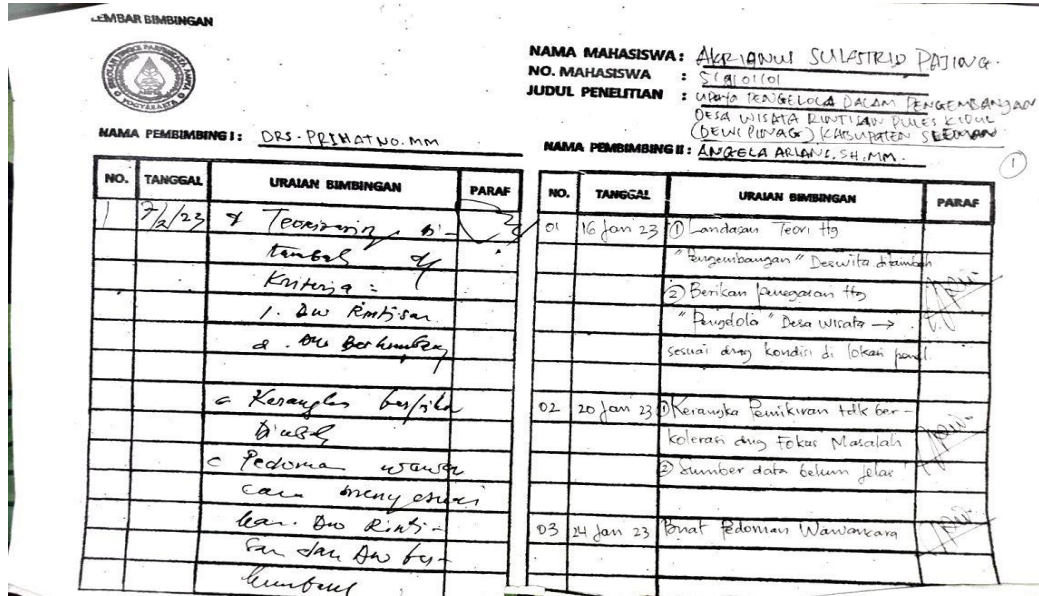 LEMBAR BIMBINGAN
SEKOLAH TINGGI PARIWISATA AMPTA
YOGYAKARTA
NAMA MAHASISWA : AKRIANUS SULASTRIO PAJING.
NO. MAHASISWA : 519101101
JUDUL PENELITIAN : UPAYA PENGELOLA DALAM PENGEMBANGAN
DESA WISATA RINTISAN PULES KIDUL
(DEWI PUNAG) KABUPATEN SLEMAN
NAMA PEMBIMBING I : DRS. PRIHATNO. MM
NAMA PEMBIMBING II : ANGELA ARIANI, SH, MM.
1
NO. TANGGAL URAIAN BIMBINGAN PARAF
1 7/2/23 Teori di-
tambah
Kriteria :
1. DW Rintisan
2. DW Berkembang
Kerangka berfikir
Pedoman wawan
cara menyesuai
kan. DW Rinti-
san dan DW ber-
kembang
NO. TANGGAL URAIAN BIMBINGAN PARAF
01 16 Jan 23 ① Landasan Teori ttg
"Pengembangan" Deswita ditambah
② Berikan penegasan ttg
"Pengelola" Desa Wisata →
sesuai dng kondisi di lokasi penel.
02 20 Jan 23 ① Kerangka Pemikiran tdk ber-
kolerasi dng Fokus Masalah
② Sumber data belum jelas
03 24 Jan 23 Buat Pedoman Wawancara